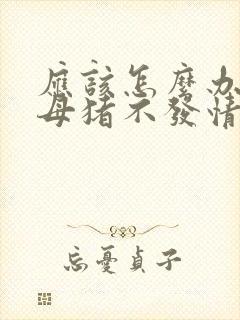 應該怎麼办
母猪不發情
忘憂貞子